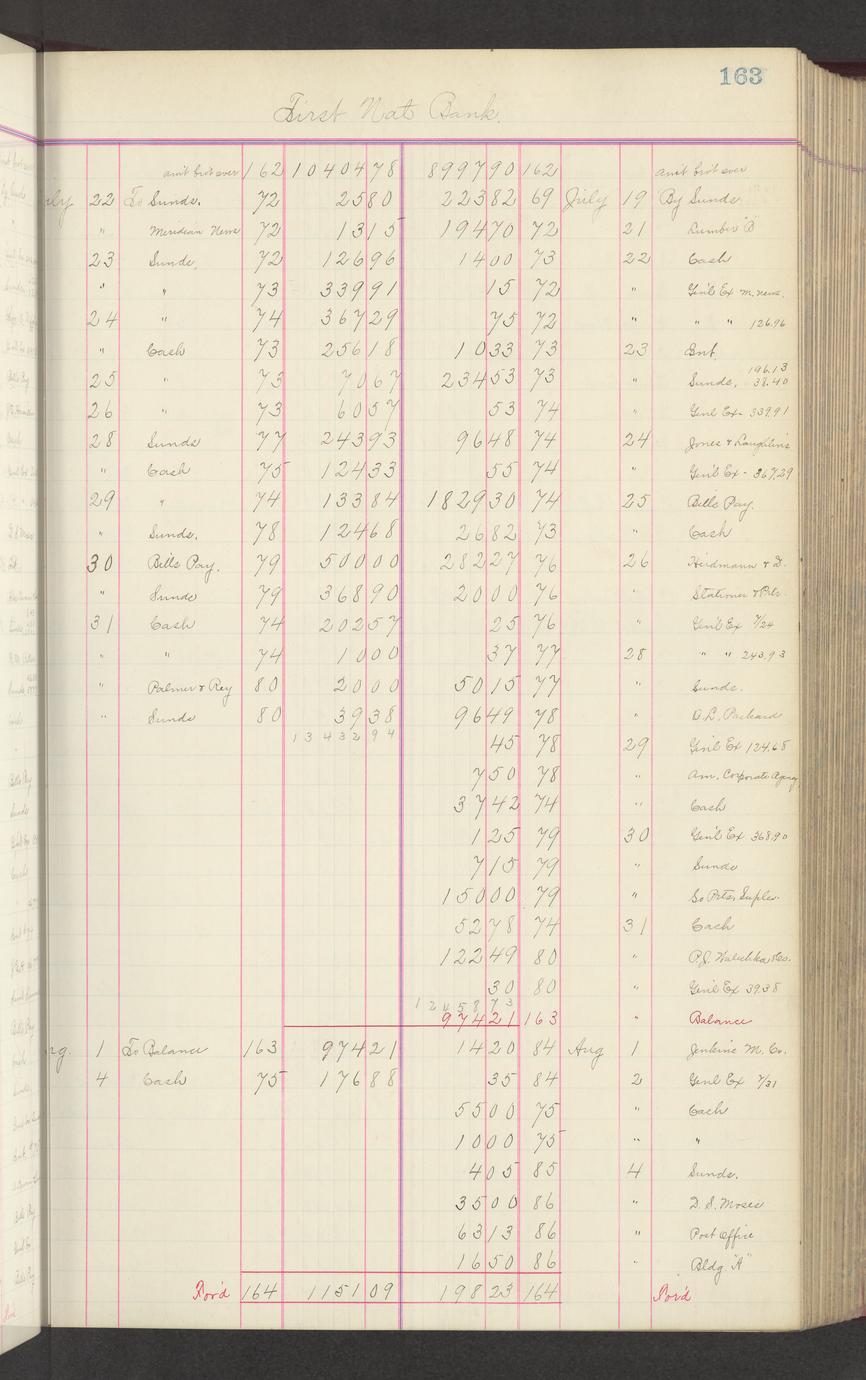 163
First Nat Bank.
am't bro't over 162 10404 78 8997 90 162 am't bro't over
22 To Sunds. 72 25 80 223 82 69 July 19 By Sunds
" Meridian News 72 13 15 194 70 72 21 Lumber "B"
23 Sunds 72 126 96 14 00 73 22 Cash
" " 73 339 91 15 72 " Gen'l Ex M. News.
24 " 74 367 29 75 72 " " " 126.96
" Cash 73 256 18 10 33 73 23 Int.
25 " 73 70 67 234 53 73 " Sunds. 196.13 38.40
26 " 73 60 57 53 74 " Gen'l Ex - 339.91
28 Sunds 77 243 93 96 48 74 24 Jones & Laughlins
" Cash 75 124 33 55 74 " Gen'l Ex - 367.29
29 " 74 133 84 1829 30 74 25 Bills Pay.
" Sunds. 78 124 68 26 82 73 " Cash
30 Bills Pay. 79 500 00 282 27 76 26 & D.
" Sunds 79 368 90 20 00 76 " Stationer &
31 Cash 74 202 57 25 76 " Gen'l Ex 7/24
" " 74 10 00 37 77 28 " " 243.93
" Palmer & Rey 80 20 00 50 15 77 " Sunds.
" Sunds 80 39 38 96 49 78 " Packard
13432 94 45 78 29 Gen'l Ex 124.68
7 50 78 " Am. Corporate Agency
37 42 74 " Cash
1 25 79 30 Gen'l Ex 368.90
7 15 79 " Sunds
150 00 79 " So
52 78 74 31 Cash
122 49 80 "
30 80 " Gen'l Ex 39.38
12458 73
974 21 163 " Balance
1 To Balance 163 974 21 14 20 84 Aug 1 Jenkins M. Co.
4 Cash 75 176 88 35 84 2 Gen'l Ex 7/31
55 00 75 " Cash
10 00 75 " "
4 05 85 4 Sunds.
35 00 86 " D. S. Moses
63 13 86 " Post Office
16 50 86 " Bldg "A"
For'd 164 1151 09 198 23 164 For'd